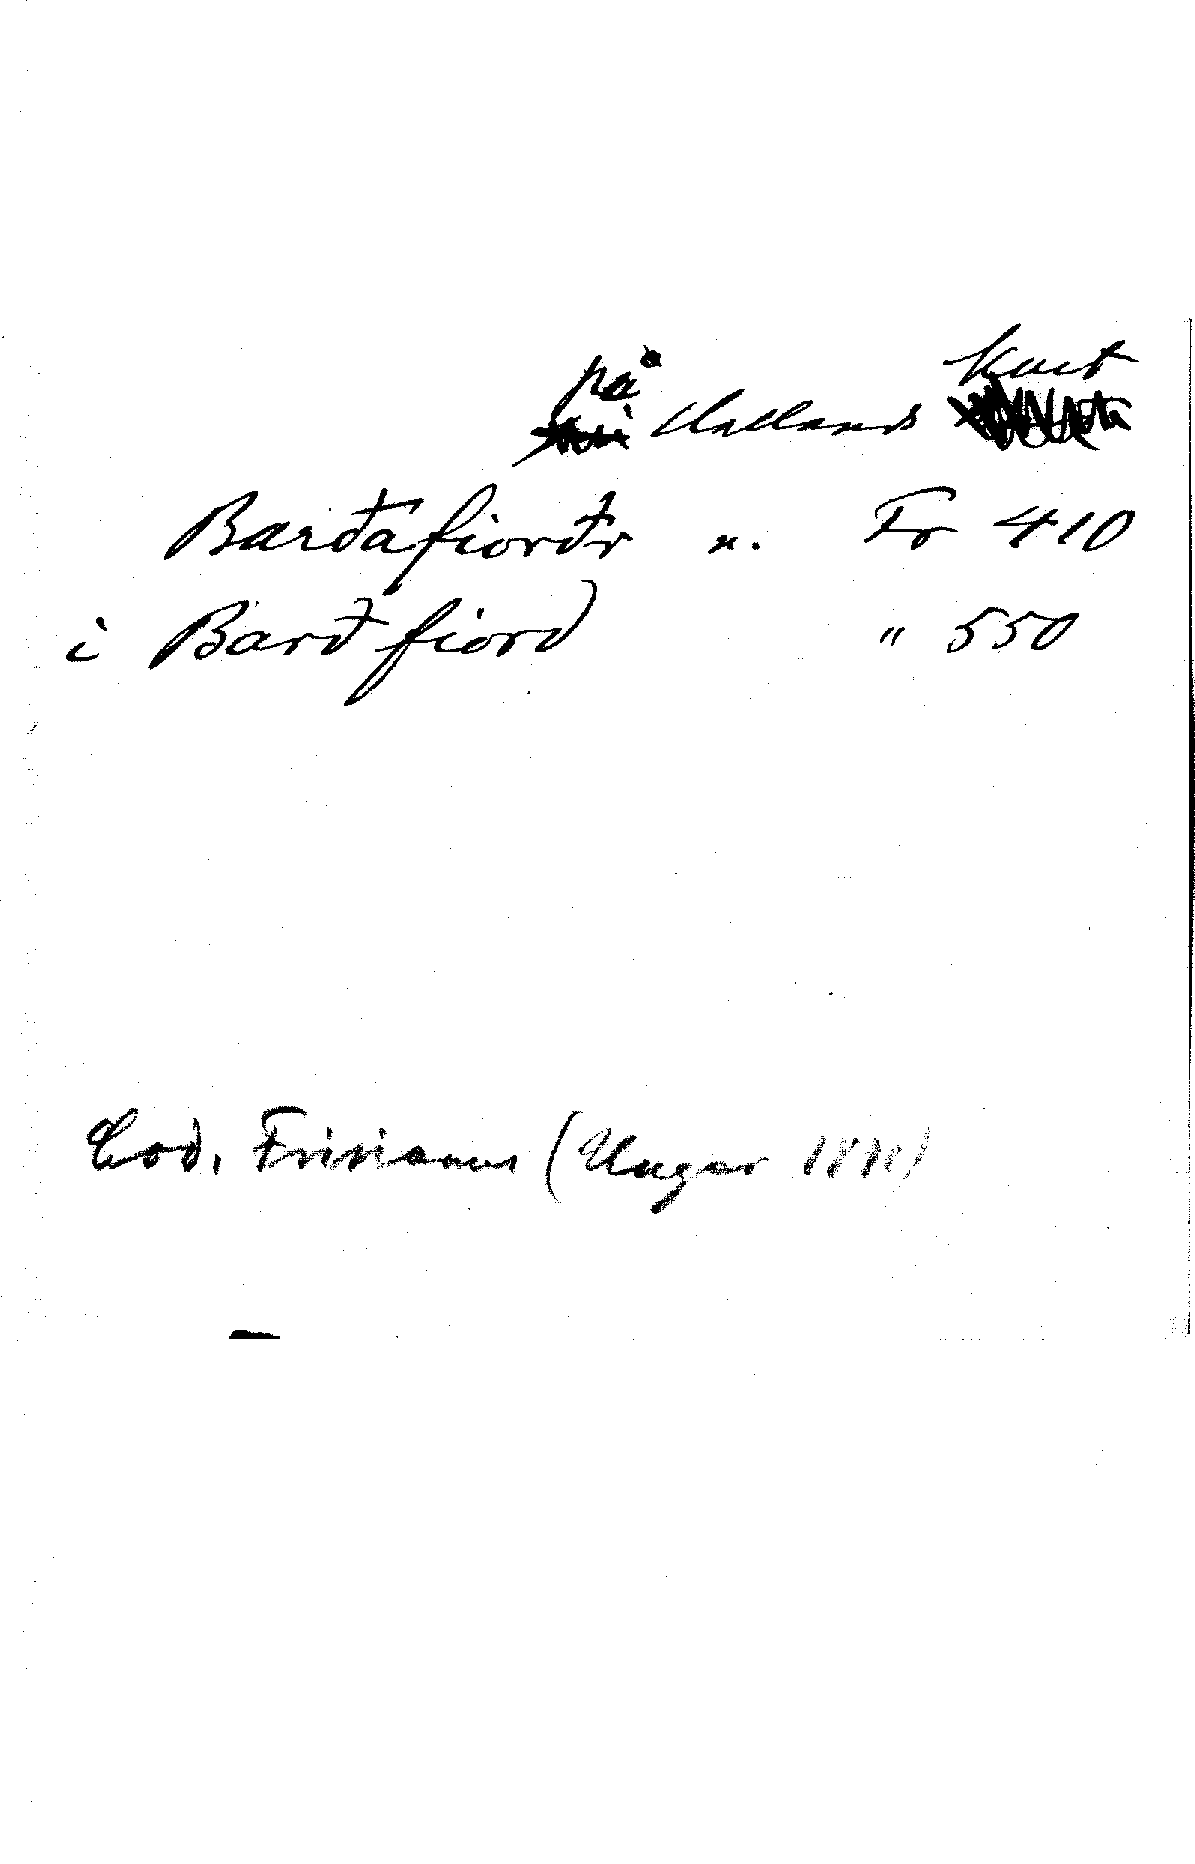 på Hallands kust
Barðafiorðr n. Fr 410
i Barð fiord " 550
Cod. Frisianus (Unger